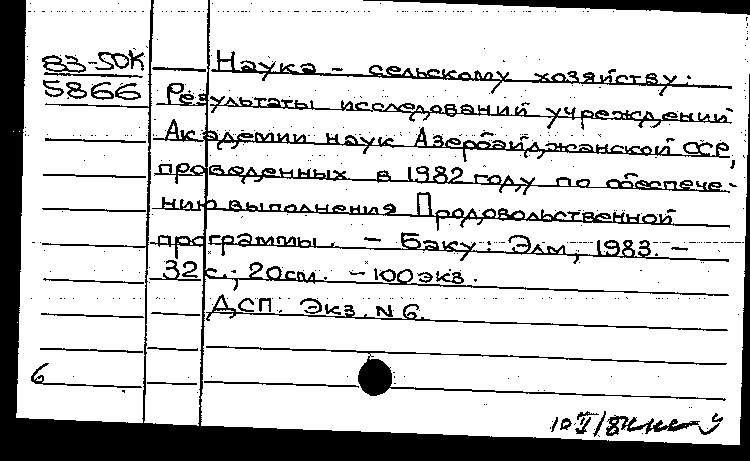 83-50К
5866
Наука - сельскому хозяйству:
Результаты исследований учреждений
Академии наук Азербайджанской ССР,
проведенных в 1982 году по обеспече-
нию выполнения Продовольственной
программы. - Баку: Элм, 1983. -
32 с.; 20 см. - 100 экз.
ДСП. Экз. N 6.
6
10 V/84